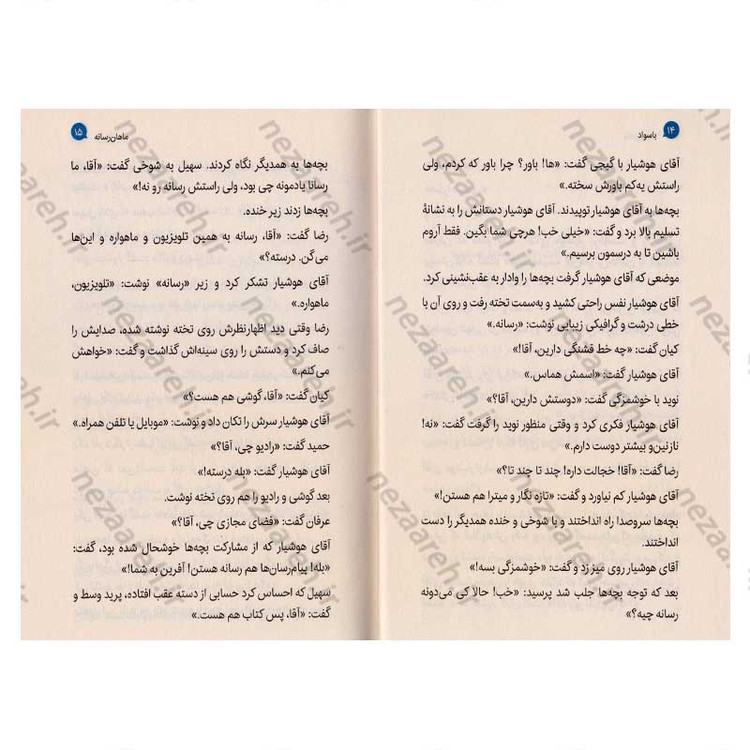 ۱۴ باسواد
آقای هوشیار با گیجی گفت: «ها! باور؟ چرا باور که کردم، ولی
راستش یه‌کم باورش سخته.»
بچه‌ها به آقای هوشیار توپیدند. آقای هوشیار دستانش را به نشانهٔ
تسلیم بالا برد و گفت: «خیلی خب! هرچی شما بگین. فقط آروم
باشین تا به درسمون برسیم.»
موضعی که آقای هوشیار گرفت بچه‌ها را وادار به عقب‌نشینی کرد.
آقای هوشیار نفس راحتی کشید و به‌سمت تخته رفت و روی آن با
خطی درشت و گرافیکی زیبایی نوشت: «رسانه.»
کیان گفت: «چه خط قشنگی دارین، آقا!»
آقای هوشیار گفت: «اسمش هماس.»
نوید با خوشمزگی گفت: «دوستش دارین، آقا؟»
آقای هوشیار فکری کرد و وقتی منظور نوید را گرفت گفت: «نه!
نازنین‌و بیشتر دوست دارم.»
رضا گفت: «آقا! خجالت داره! چند تا چند تا؟»
آقای هوشیار کم نیاورد و گفت: «تازه نگار و میترا هم هستن!»
بچه‌ها سروصدا راه انداختند و با شوخی و خنده همدیگر را دست
انداختند.
آقای هوشیار روی میز زد و گفت: «خوشمزگی بسه!»
بعد که توجه بچه‌ها جلب شد پرسید: «خب! حالا کی می‌دونه
رسانه چیه؟»
ماهان‌رسانه ۱۵
بچه‌ها به همدیگر نگاه کردند. سهیل به شوخی گفت: «آقا، ما
رسانا یادمونه چی بود، ولی راستش رسانه رو نه!»
بچه‌ها زدند زیر خنده.
رضا گفت: «آقا، رسانه به همین تلویزیون و ماهواره و این‌ها
می‌گن. درسته؟»
آقای هوشیار تشکر کرد و زیر «رسانه» نوشت: «تلویزیون،
ماهواره.»
رضا وقتی دید اظهارنظرش روی تخته نوشته شده، صدایش را
صاف کرد و دستش را روی سینه‌اش گذاشت و گفت: «خواهش
می‌کنم.»
کیان گفت: «آقا، گوشی هم هست؟»
آقای هوشیار سرش را تکان داد و نوشت: «موبایل یا تلفن همراه.»
حمید گفت: «رادیو چی، آقا؟»
آقای هوشیار گفت: «بله درسته!»
بعد گوشی و رادیو را هم روی تخته نوشت.
عرفان گفت: «فضای مجازی چی، آقا؟»
آقای هوشیار که از مشارکت بچه‌ها خوشحال شده بود، گفت:
«بله! پیام‌رسان‌ها هم رسانه هستن! آفرین به شما!»
سهیل که احساس کرد حسابی از دسته عقب افتاده، پرید وسط و
گفت: «آقا، پس کتاب هم هست.»
nezaareh.ir